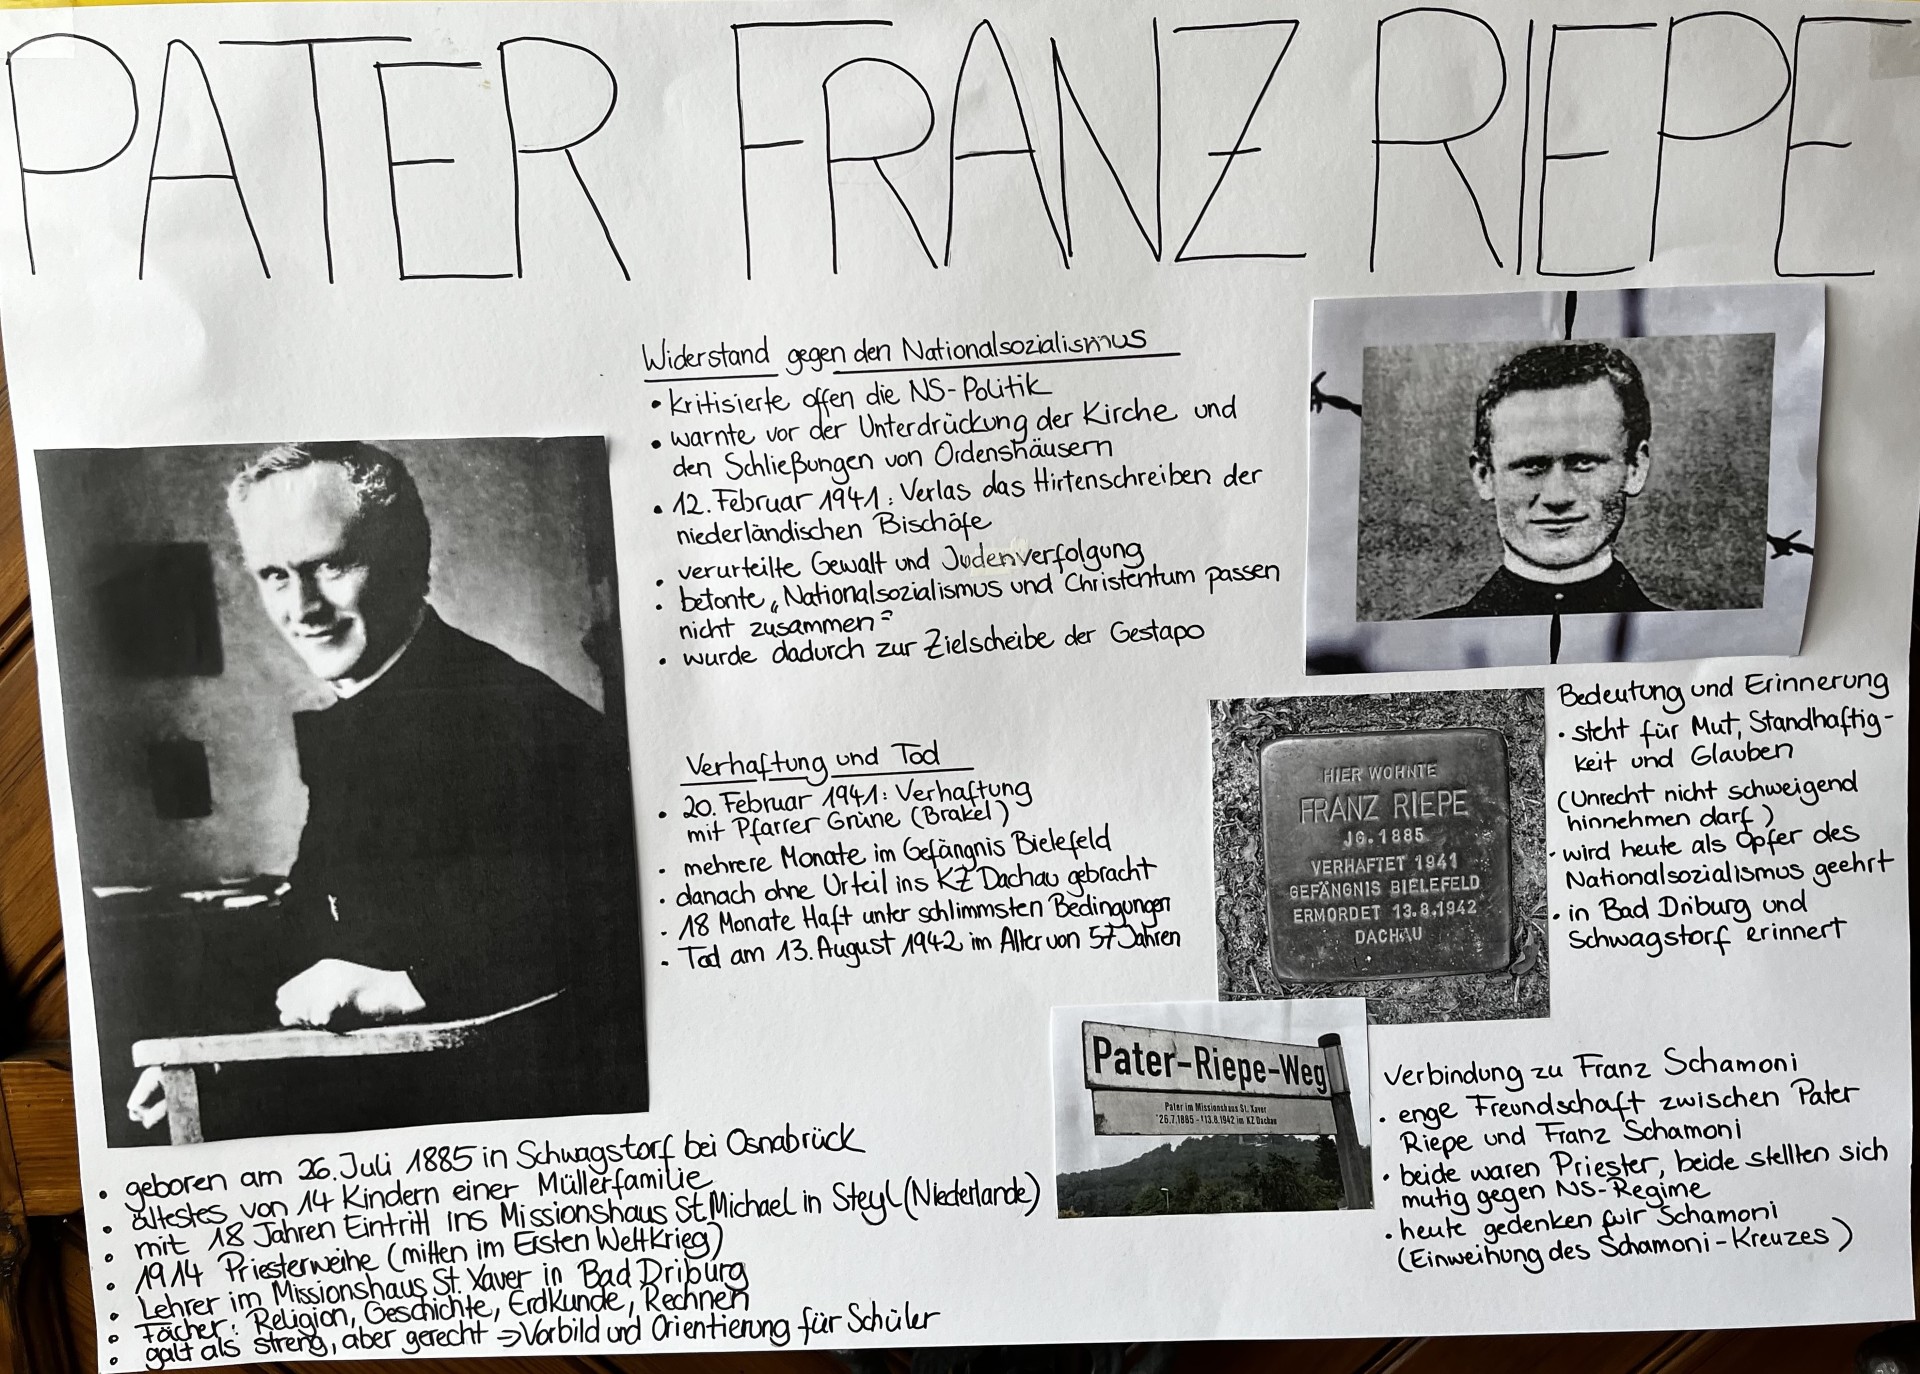 PATER FRANZ RIEPE
Widerstand gegen den Nationalsozialismus
• kritisierte offen die NS-Politik
• warnte vor der Unterdrückung der Kirche und
den Schließungen von Ordenshäusern
• 12. Februar 1941: Verlas das Hirtenschreiben der
niederländischen Bischöfe
• verurteilte Gewalt und Judenverfolgung
• betonte „Nationalsozialismus und Christentum passen
nicht zusammen“
• wurde dadurch zur Zielscheibe der Gestapo
Verhaftung und Tod
• 20. Februar 1941: Verhaftung
mit Pfarrer Grüne (Brakel)
• mehrere Monate im Gefängnis Bielefeld
• danach ohne Urteil ins KZ Dachau gebracht
• 18 Monate Haft unter schlimmsten Bedingungen
• Tod am 13. August 1942 im Alter von 57 Jahren
HIER WOHNTE
FRANZ RIEPE
JG. 1885
VERHAFTET 1941
GEFÄNGNIS BIELEFELD
ERMORDET 13.8.1942
DACHAU
Bedeutung und Erinnerung
• steht für Mut, Standhaftig-
keit und Glauben
(Unrecht nicht schweigend
hinnehmen darf)
• wird heute als Opfer des
Nationalsozialismus geehrt
• in Bad Driburg und
Schwagstorf erinnert
Pater-Riepe-Weg
Pater im Missionshaus St. Xaver
*26.7.1885 - †13.8.1942 im KZ Dachau
Verbindung zu Franz Schamoni
• enge Freundschaft zwischen Pater
Riepe und Franz Schamoni
• beide waren Priester, beide stellten sich
mutig gegen NS-Regime
• heute gedenken wir Schamoni
(Einweihung des Schamoni-Kreuzes)
• geboren am 26. Juli 1885 in Schwagstorf bei Osnabrück
• ältestes von 14 Kindern einer Müllerfamilie
• mit 18 Jahren Eintritt ins Missionshaus St. Michael in Steyl (Niederlande)
• 1914 Priesterweihe (mitten im Ersten Weltkrieg)
• Lehrer im Missionshaus St. Xaver in Bad Driburg
• Fächer: Religion, Geschichte, Erdkunde, Rechnen
• galt als streng, aber gerecht ⇒ Vorbild und Orientierung für Schüler